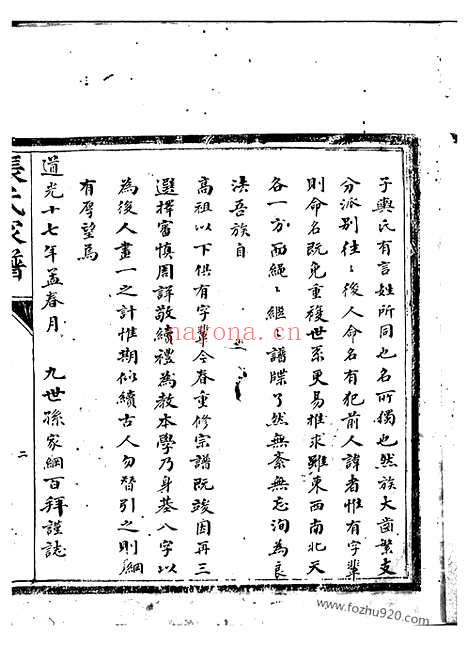 子輿氏有言姓所同也名所獨也然族大齒繁支
分派別往〻後人命名有犯前人諱者惟有字輩
則命名既免重複世系更易推求雖東西南北天
各一方而繩〻繼〻譜牒了然無紊無忘洵為良
法吾族自
高祖以下俱有字輩今春重修宗譜既竣因再三
選擇審慎周詳敬續禮為教本學乃身基八字以
為後人畫一之計惟期似續古人勿替引之則綱
有厚望焉
道光十七年孟春月 九世孫家綱百拜謹誌
張氏家譜
二
nayona.cn
www.fozhu920.com